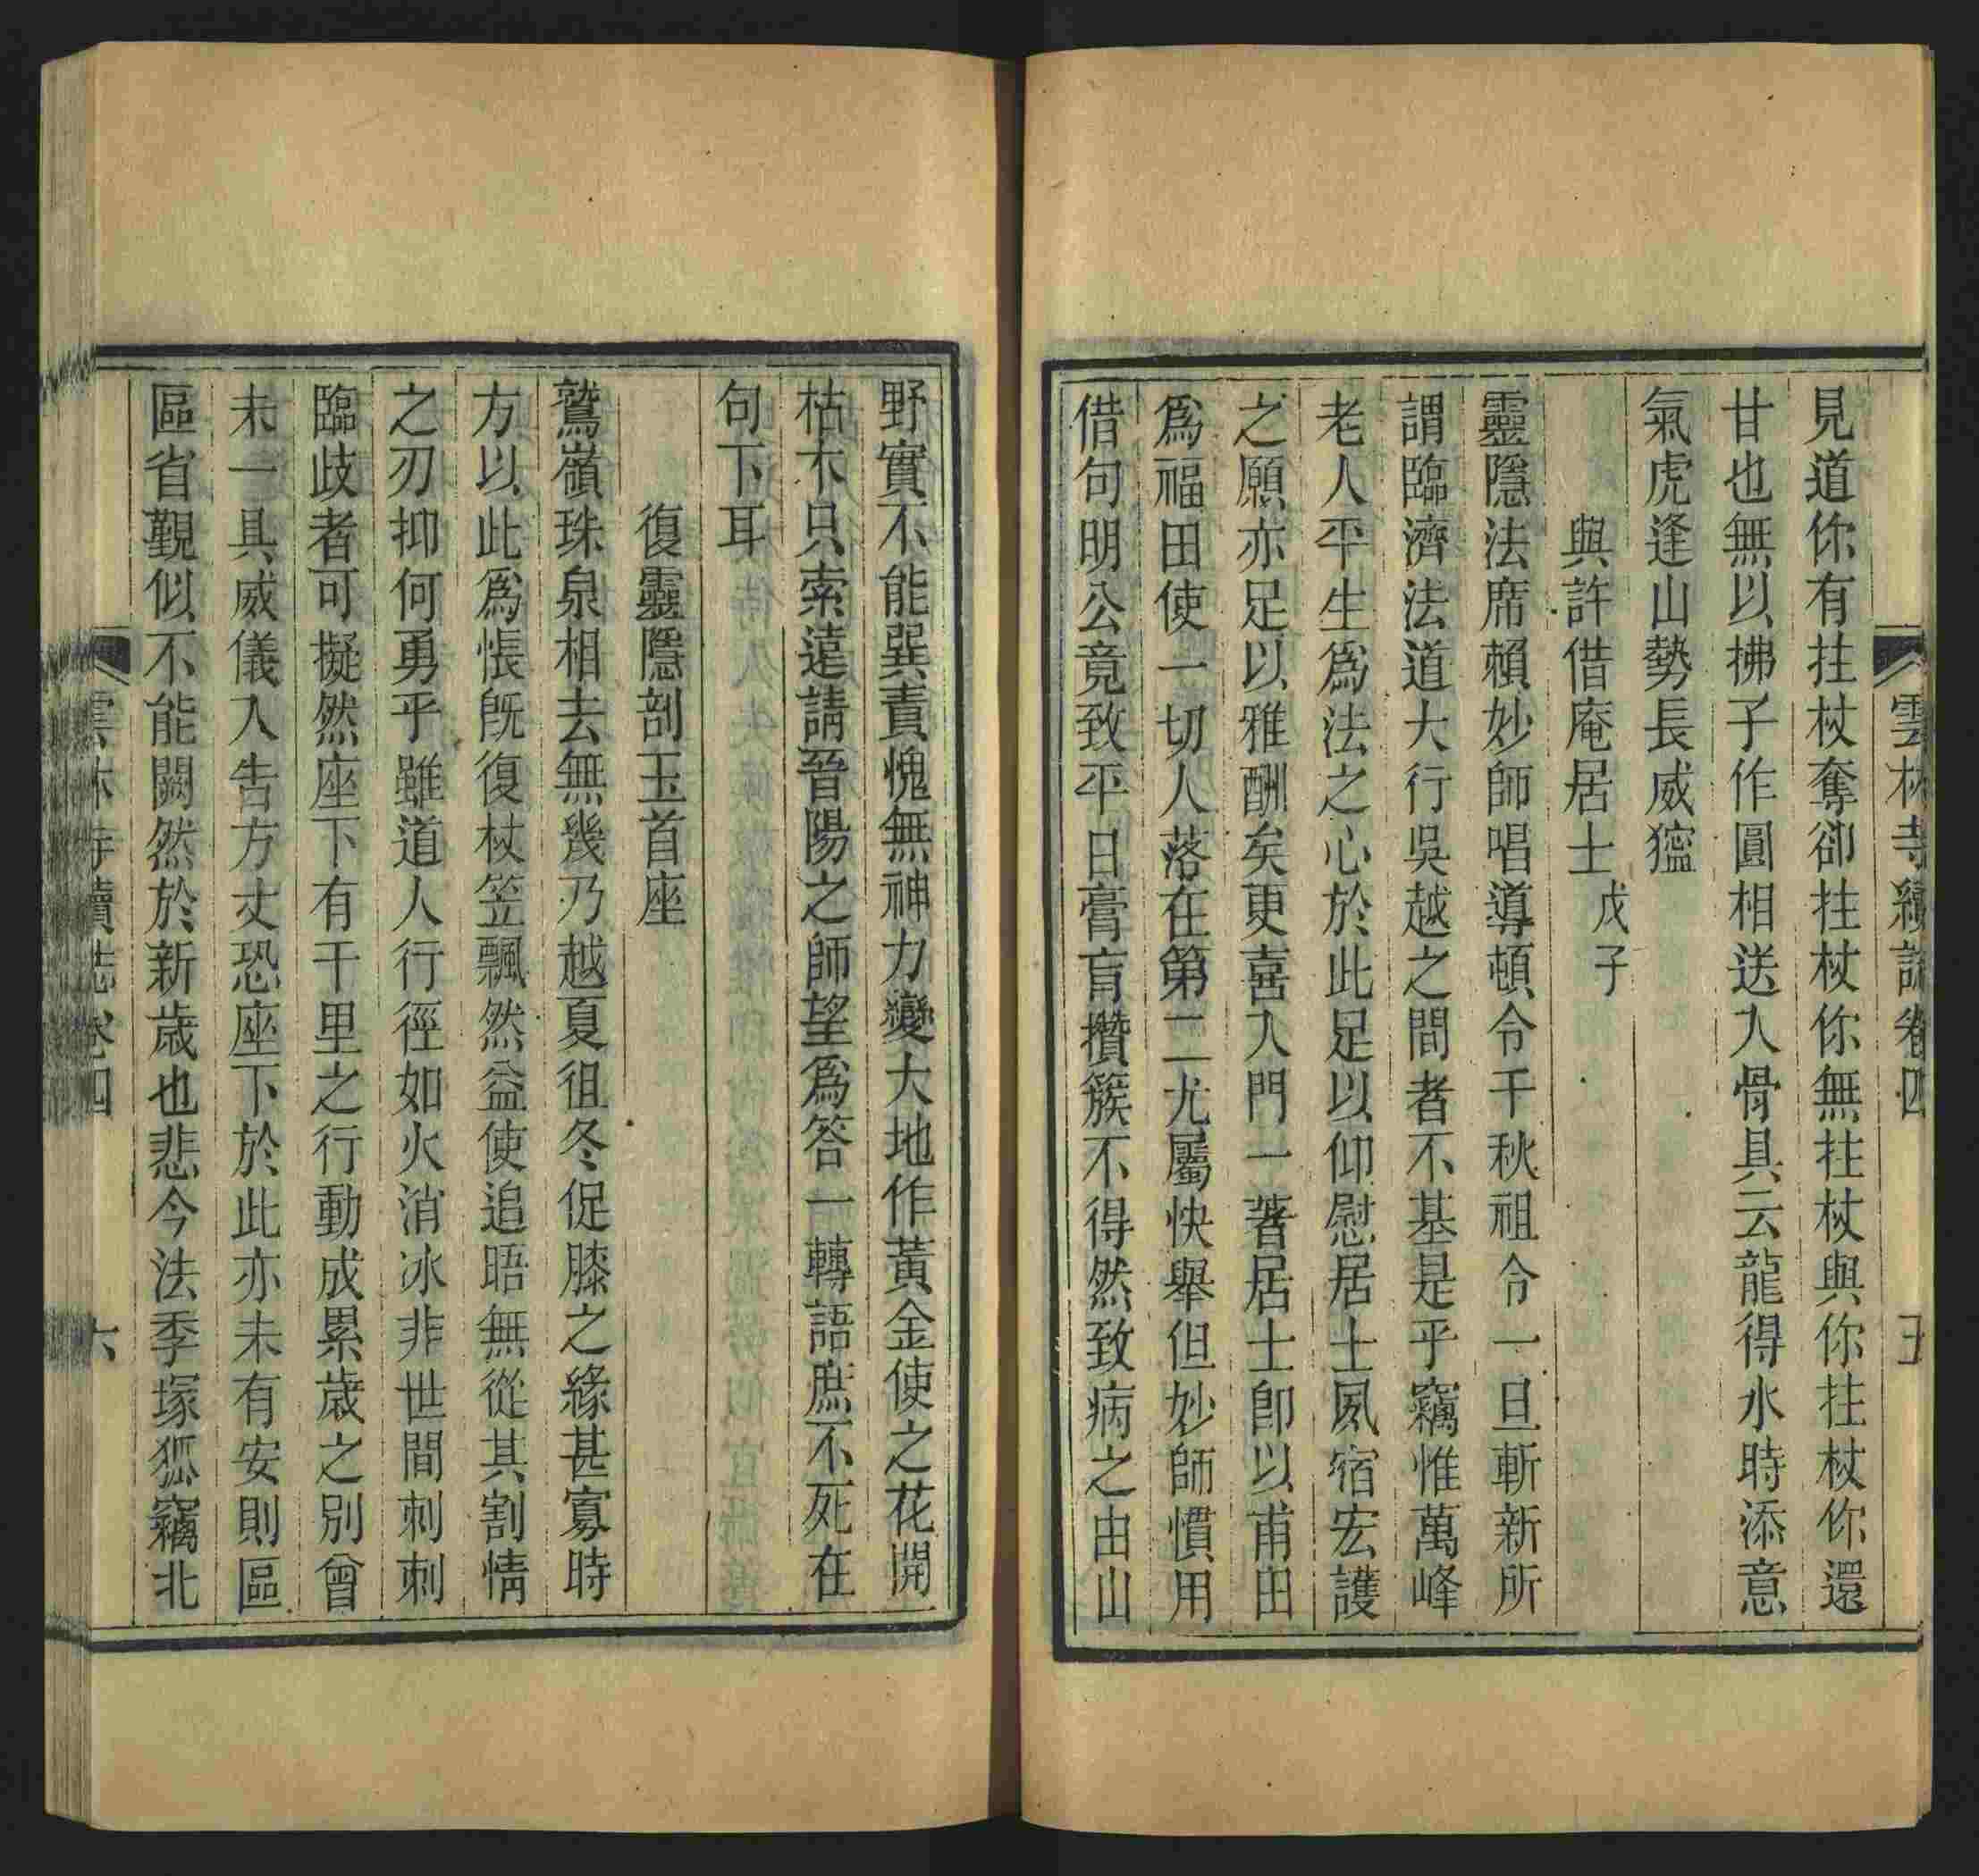 雲林寺續誌卷四 五
見道你有拄杖奪卻拄杖你無拄杖與你拄杖你還
甘也無以拂子作圓相送入骨具云龍得水時添意
氣虎逢山勢長威獰
與許借庵居士 戊子
靈隱法席賴妙師唱導頓令千秋祖令一旦斬新所
謂臨濟法道大行吳越之間者不基是乎竊惟萬峰
老人平生爲法之心於此足以仰慰居士夙宿宏護
之願亦足以雅酬矣更喜入門一著居士卽以甫田
爲福田使一切人落在第二尤屬快舉但妙師慣用
借句明公竟致平日膏肓攢簇不得然致病之由山
野實不能巽責愧無神力變大地作黃金使之花開
枯木只索遠請晉陽之師望爲答一轉語庶不死在
句下耳
復靈隱剖玉首座
鷲嶺珠泉相去無幾乃越夏徂冬促膝之緣甚寡時
方以此爲悵旣復杖笠飄然益使追晤無從其割情
之刃抑何勇乎雖道人行徑如火消冰非世間刺刺
臨歧者可擬然座下有千里之行動成累歲之別曾
未一具威儀入告方丈恐座下於此亦未有安則區
區省覲似不能闕然於新歲也悲今法季塚狐竊北
雲林寺續誌卷四 六